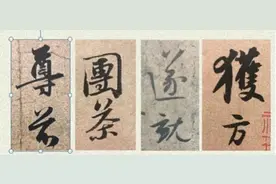 獲方
遂就
團茶
尊前